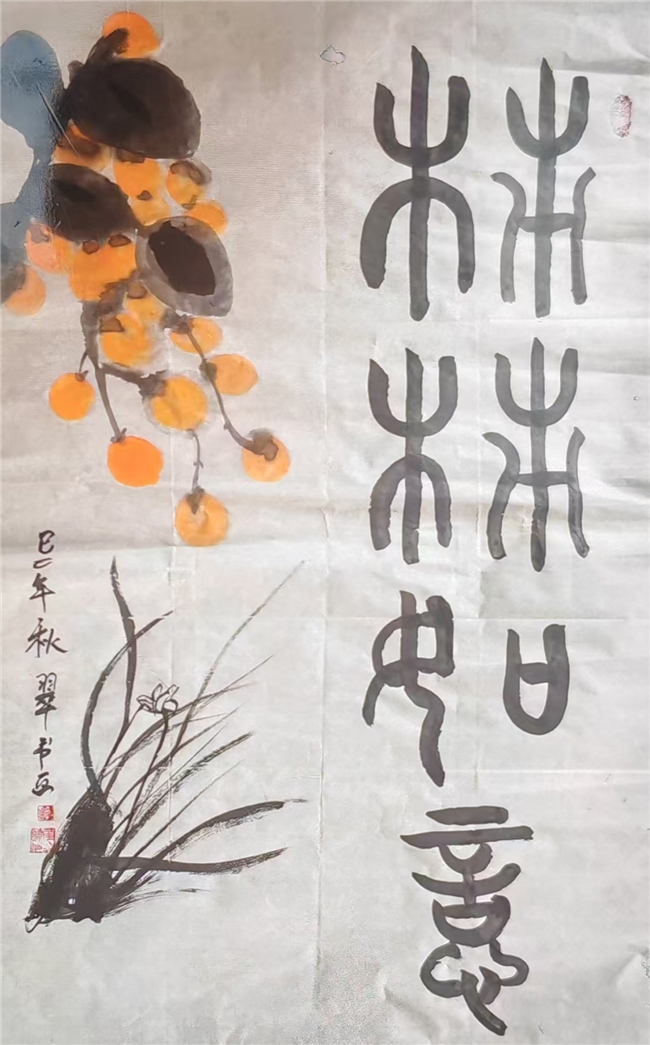 柿柿如意
年秋翠书画